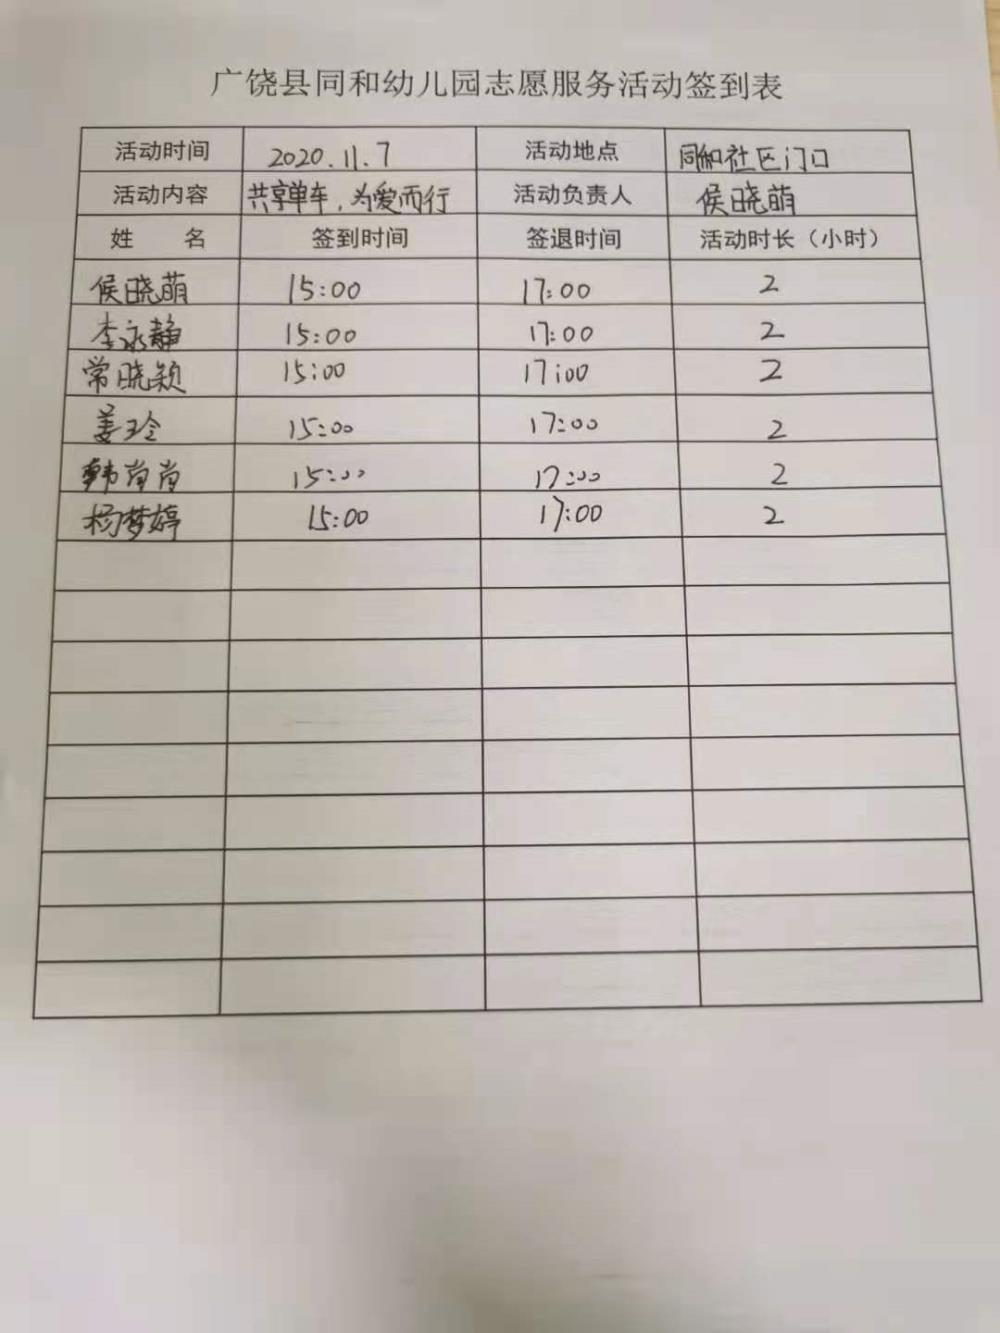 广饶县同和幼儿园志愿服务活动签到表
活动时间 2020.11.7 活动地点 同和社区门口
活动内容 共享单车，为爱而行 活动负责人 侯晓萌
姓 名 签到时间 签退时间 活动时长（小时）
侯晓萌 15:00 17:00 2
李永静 15:00 17:00 2
常晓颖 15:00 17:00 2
姜玲 15:00 17:00 2
韩肖肖 15:00 17:00 2
杨梦婷 15:00 17:00 2